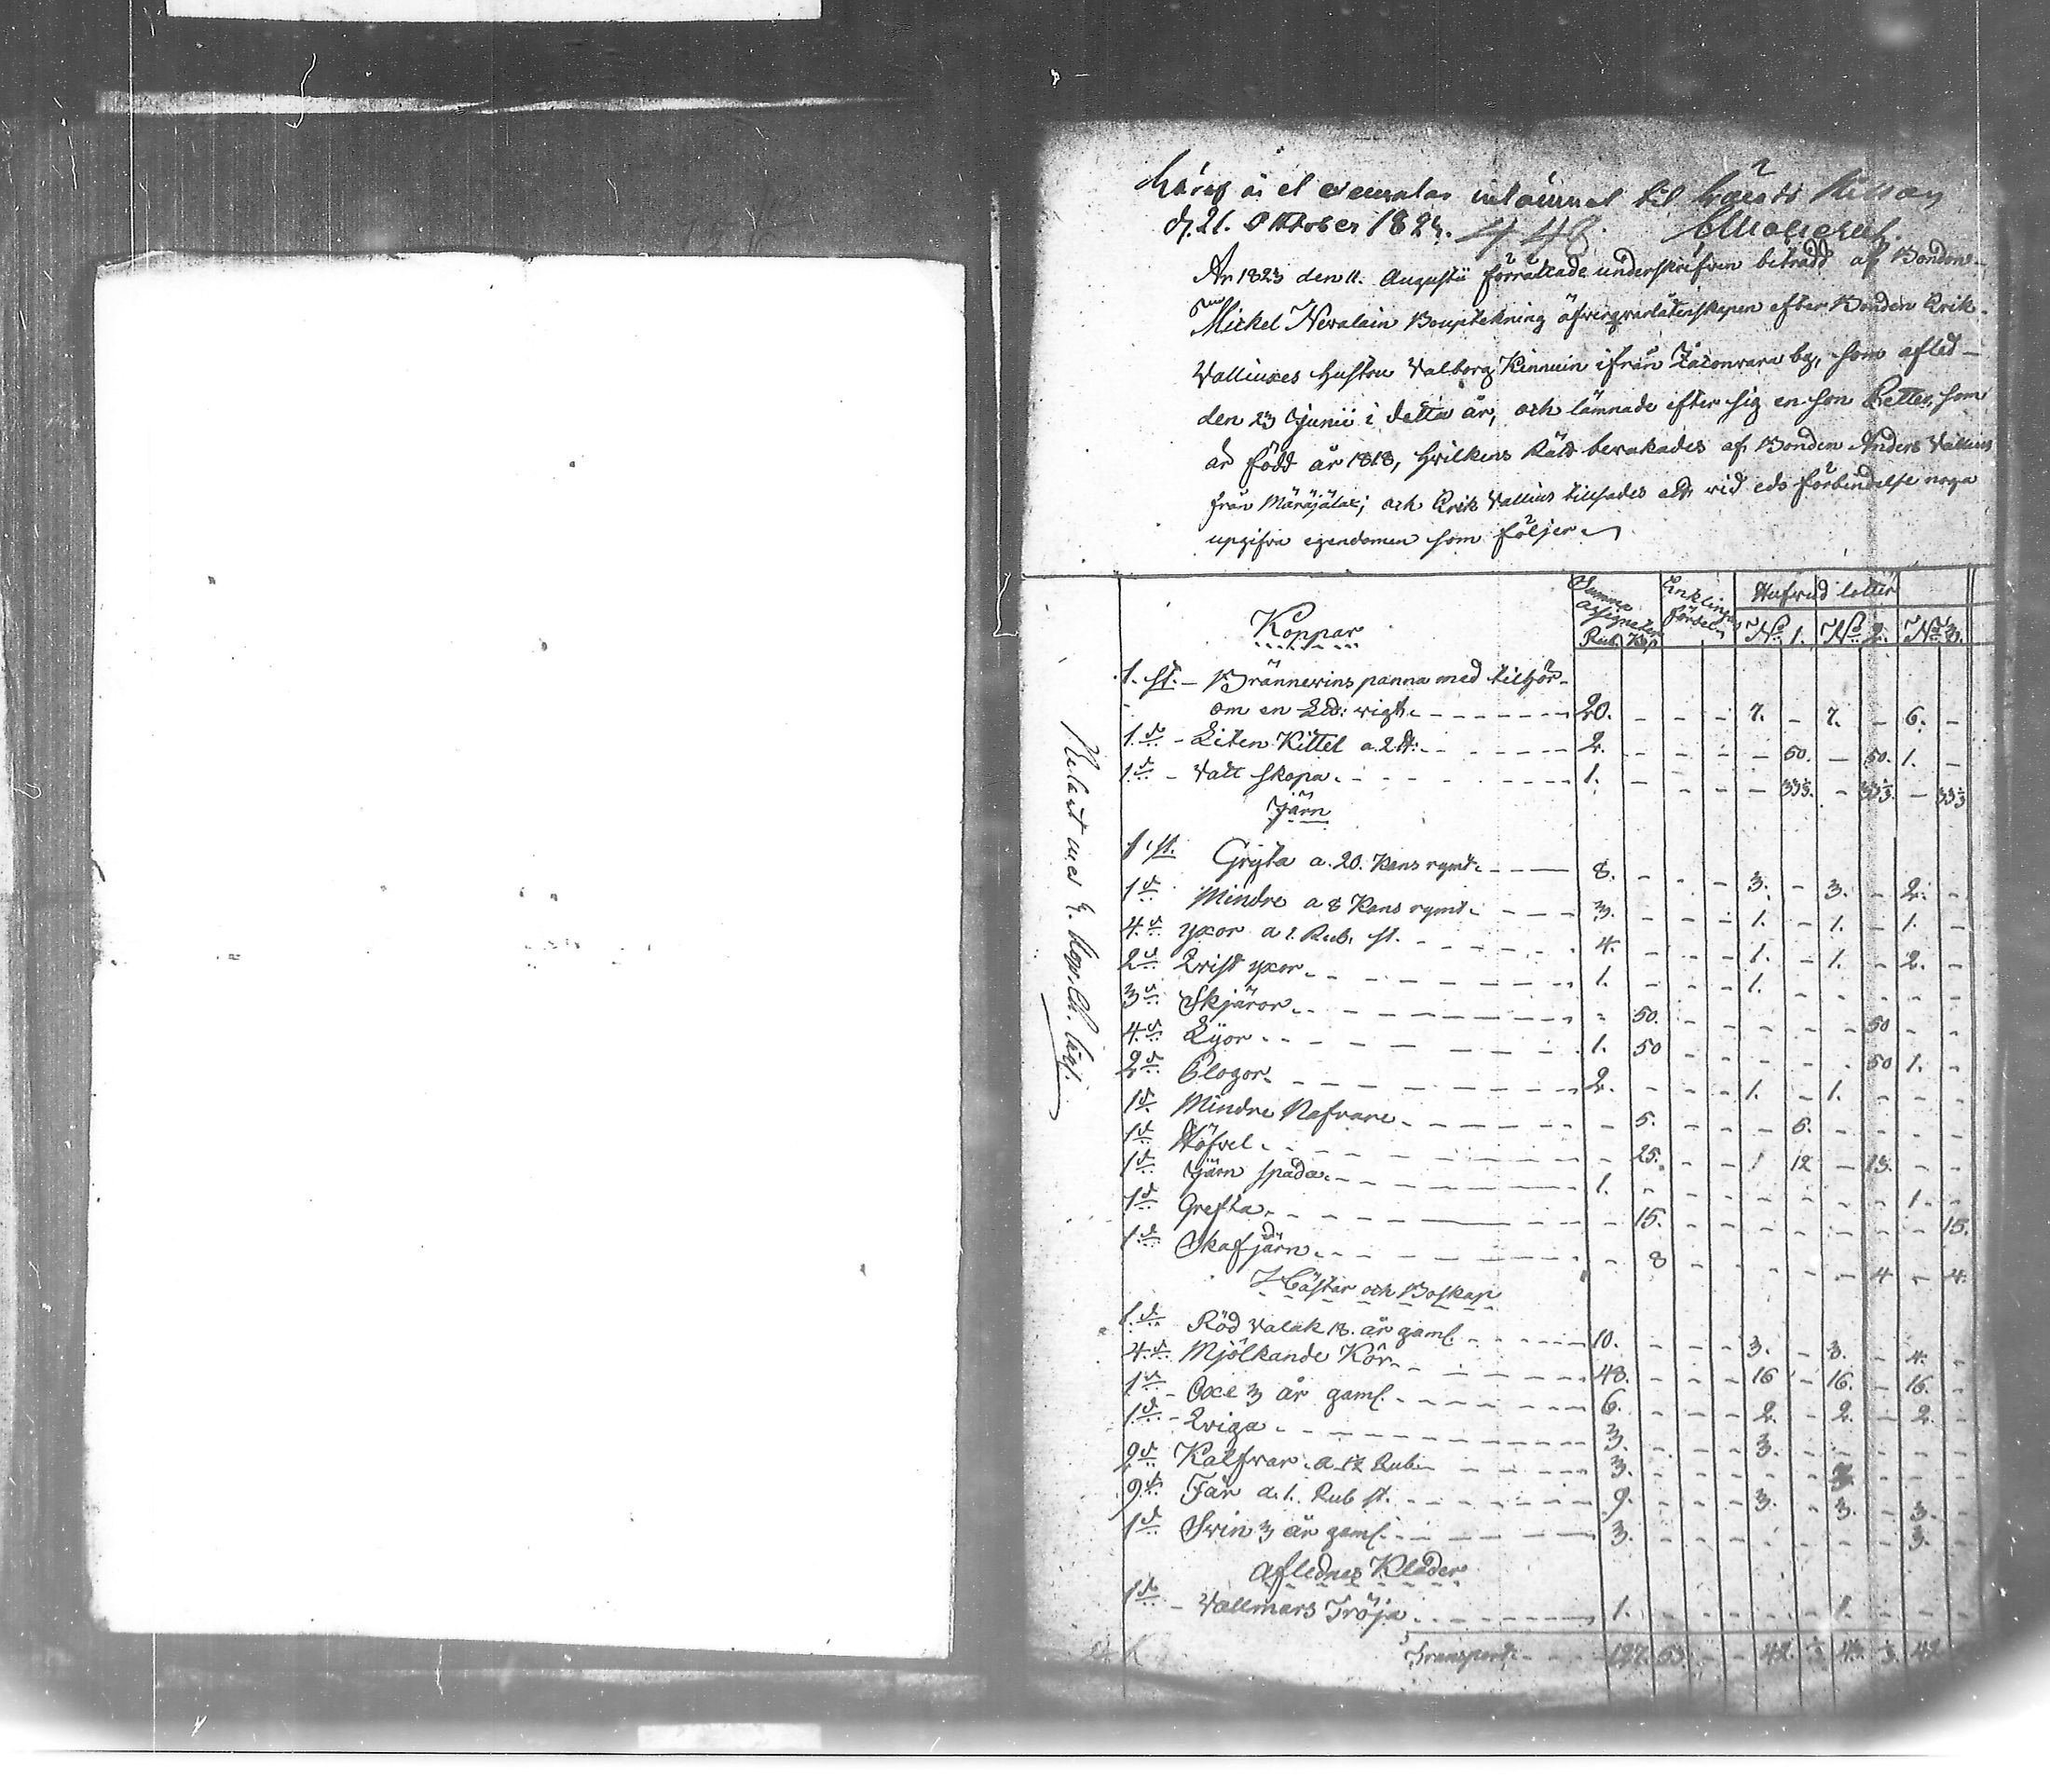 d. 21. Oktober 1823. 448.
År 1823 den 11. Augustii förrättade underskrifven biträdd af Bonden
Mickel Nevalain Bouptekning öfverqvarlåtenskapen efter Bonden Erik
Valliuxes hustru Valborg Kinnuin ifrån by, som afled
den 23 Junii i detta år, och lämnade efter sig en son Petter, som
är född år 1818, hvilkens Rätt bevakades af Bonden Anders Vallius
från och Erik Vallius tillsades att vid eds förbindelse noga
upgifva egendomen som följer
Summa assignater Enklingens fördel Hufvud lotter
Koppar Rub. Kop No 1. No 2. No 3.
1. st. Brännevins panna med tilhör-
om en Lb: vigt 20. 7. 7. 6.
1. do Liten Kittel a 2 2. 50. 50. 1.
1. do Vatt skopa 1. 33⅓. 33⅓. 33⅓
Järn
1 st. Gryta a 20. Kans rymt 8. 3. 3. 2.
1 do Mindre a 8 Kans rymt 3. 1. 1. 1.
4. do yxor a 1. Rub. st. 4. 1. 1. 2.
2 do Qvist yxor 1. 1.
3 do Skjäror 50. 50
4. do Lijor 1. 50 50 1.
2 do Plogor 2. 1. 1.
1 do Mindre Nafvare 5. 5.
1 do Höfvel 25. 12 13.
1 do Järn spada 1. 1.
1 do Grefta 15. 15.
1 do Skafjärn 8 4 4.
Hästar och Boskap
1. do Röd Valak 18. år gaml. 10. 3. 3. 4.
4. do Mjölkande Kor 48. 16 16. 16.
1 do Oxe 3 år gaml. 6. 2. 2. 2.
1. do Qviga 3. 3.
2 do Kalfvar a 1½ Rub. 3. 3.
9 do Får a 1. Rub st. 9. 3. 3. 3.
1 do Svin 3 år gaml. 3. 3.
Aflednes Kläder
1 do Vallmars Tröja 1. 1.
Transport 127. 53 42. 43. 42